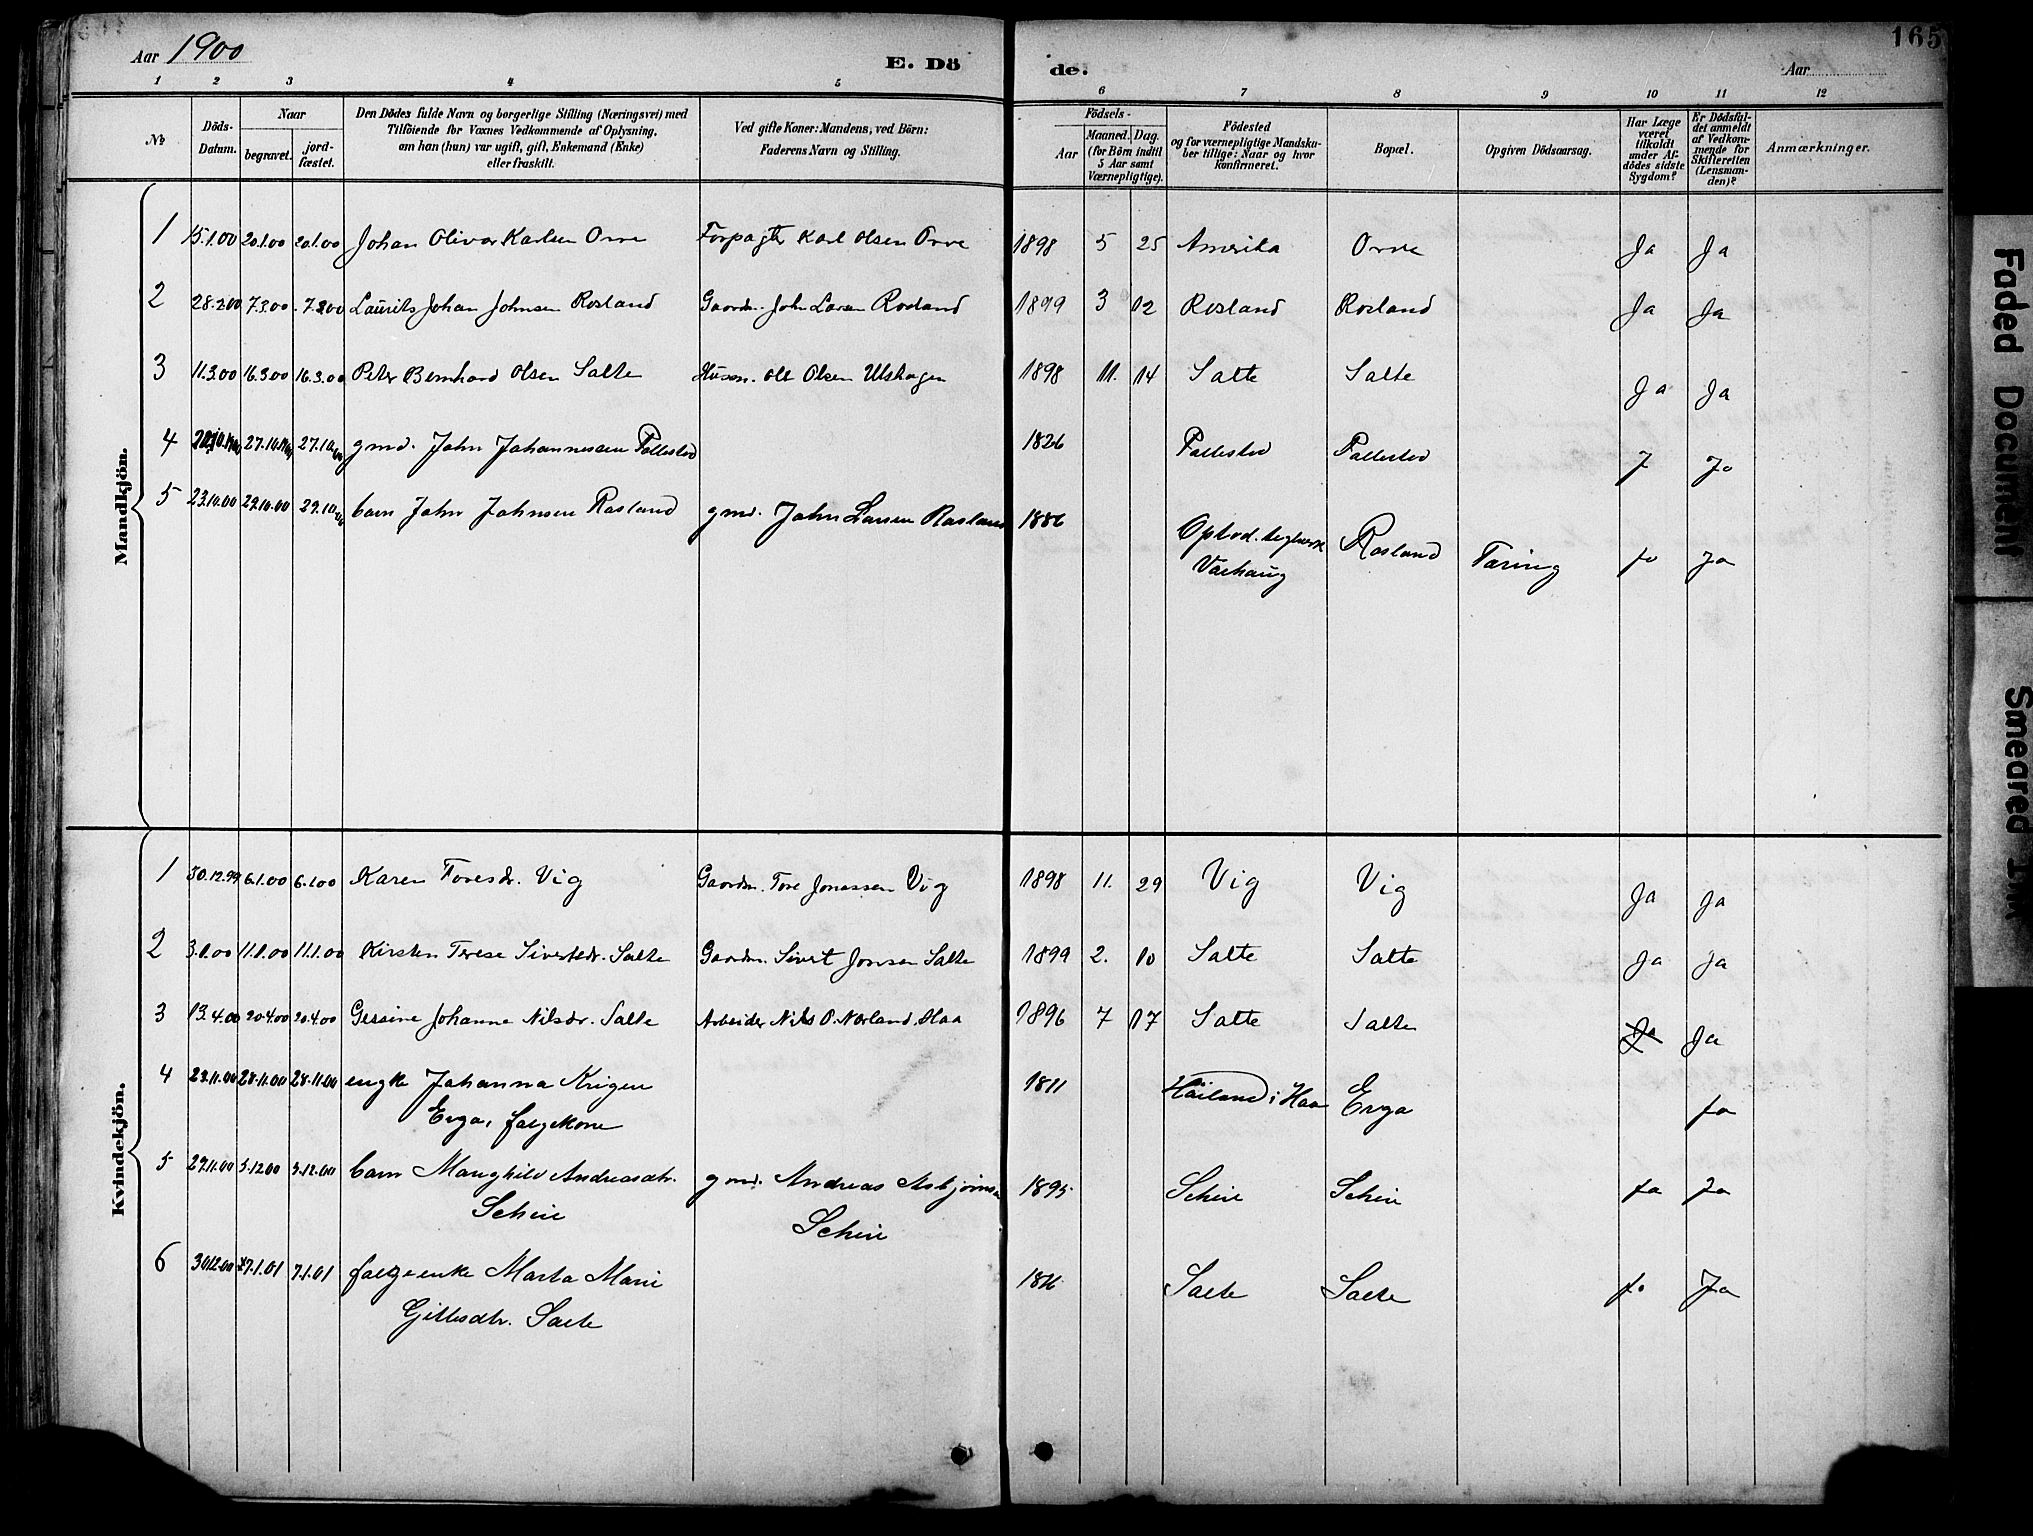 165
Aar 1900
E. Dö de.
Aar
1 2 3 4 5 6 7 8 9 10 11 12
№
Döds-Datum.
Naar
begravet.
jord-fæstet.
Den Dödes fulde Navn og borgerlige Stilling (Næringsvei) med
Tilföiende for Voxnes Vedkommende af Oplysning,
om han (hun) var ugift, gift, Enkemand (Enke)
eller fraskilt.
Ved gifte Koner: Mandens, ved Börn:
Faderens Navn og Stilling.
Födsels-
Aar
Maaned. Dag.
(for Börn indtil
5 Aar samt
Værnepligtige).
Födested
og for værnepligtige Mandska-
ber tillige: Naar og hvor
konfirmeret.
Bopæl.
Opgiven Dödsaarsag.
Har Læge
været
tilkaldt
under Af-
dödes sidste
Sygdom?
Er Dödsfal-
det anmeldt
af Vedkom-
mende for
Skifteretten
(Lensman-
den)?
Anmærkninger.
Mandkjön.
1 15.1.00 20.1.00 20.1.00 Johan Oliver Karlsen Orre Forpagter Karl Olsen Orre 1898 5 25 Amerika Orre Ja Ja
2 28.2.00 7.3.00 7.3.00 Laurits Johan Johnsen Rosland Gaardm. John Larsen Rosland 1899 3 12 Rosland Rosland Ja Ja
3 11.3.00 16.3.00 16.3.00 Peter Bernhard Olsen Salte Husm. Ole Olsen Utshagen 1898 11. 14 Salte Salte Ja Ja
4 27.10.00 27.10.00 gmd. John Johannessen 1826 J Ja
5 23.10.00 29.10.00 29.10.00 barn John Johnsen Rosland gmd. John Larsen Rosland 1886 Rosland Tæring Ja Ja
Varhaug
Kvindekjön.
1 30.12.99 6.1.00 6.1.00 Karen Toresdr. Vig Gaardm. Tore Jonassen Vig 1898 11. 29 Vig Vig Ja Ja
2 3.1.00 11.1.00 11.1.00 Kirsten Terese Sivertsdr. Salte Gaardm. Sivert Jonsen Salte 1899 2. 10 Salte Salte Ja Ja
3 13.4.00 20.4.00 20.4.00 Gessine Johanne Nilsdr. Salte Arbeider Nils O. Norland, Haa 1896 7 17 Salte Salte Ja Ja
4 23.11.00 28.11.00 28.11.00 Johanna 1811 Håiland i Haa Erga Ja
Erga,
5 27.11.00 3.12.00 3.12.00 barn Andreasdtr. gmd. Andreas Asbjörnsen 1895. Scheie Scheie Ja Ja
Scheie Scheie
6 30.12.00 7.1.01 7.1.01 Marta Marie Salte Salte Ja Ja
Gittesdtr. Salte
Faded Document
Smeared Ink